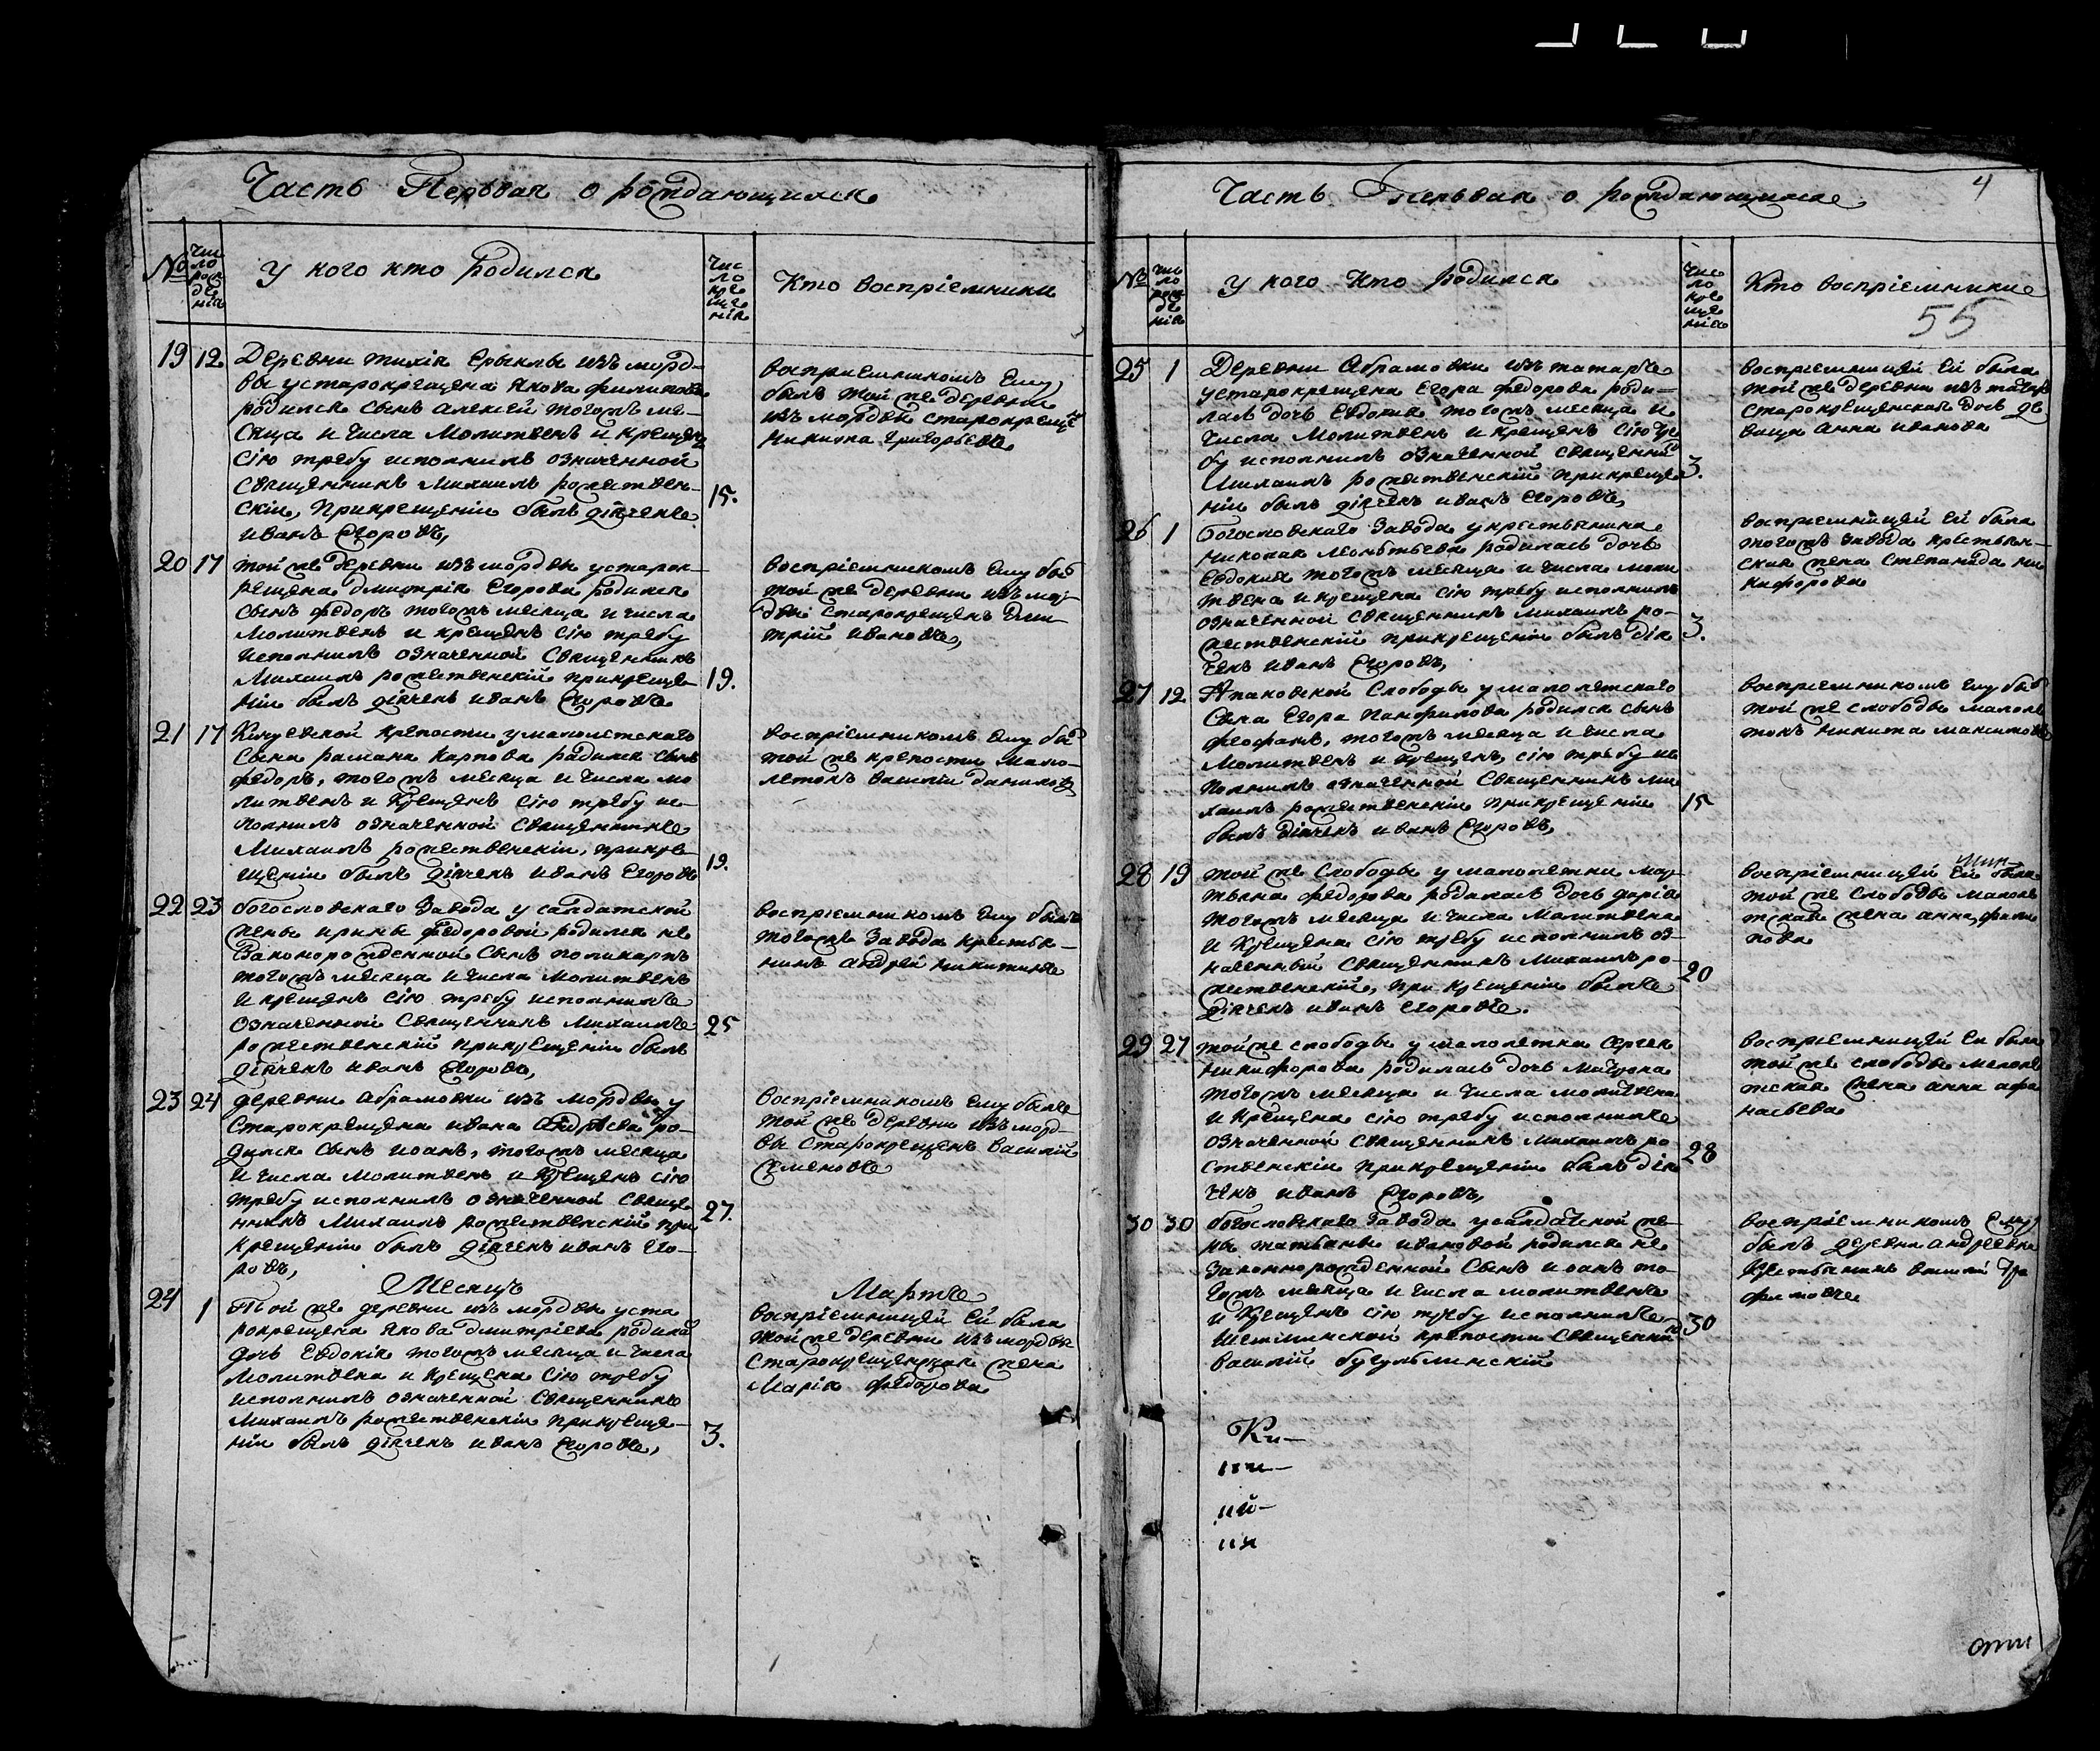 Часть Первая о рождающихся
№
Чис
ло
рож
де
нія
у кого кто родился
Чис
ло
кре
ще
нія
Кто воспріемники
19
12
Деревни тихія Ерыклы изъ морд-
вы у старокрещена Якова филипова
родился сынъ алексей тогожъ ме-
сяца и числа Молитвенъ и крещенъ
сію требу исполнилъ означенной
священникъ Михаилъ рожествен-
скій, прикрещеніи былъ дьячекъ
иванъ Егоровъ,
15.
воспріемникомъ Ему
былъ той же деревни
изъ мордвы старокрещенъ
Никита григорьевъ
20
17
той же деревни изъ мордвы у старок-
рещена дмитрія Егорова родился
сынъ федоръ тогожъ месяца и числа
молитвенъ и крещенъ сію требу
исполнилъ означенной священникъ
Михаилъ рожественскій прикреще-
ніи былъ дьячекъ иванъ Егоровъ
19.
воспріемникомъ Ему былъ
той же деревни изъ мор-
двы старокрещенъ дми-
трій ивановъ,
21
17
Кичуевской крепости у малолетскаго
сына романа карпова родился сынъ
федоръ, тогожъ месяца и числа мо-
литвенъ и крещенъ сію требу ис-
полнилъ означенной священникъ
Михаилъ рожественскіи, прикре-
щеніи былъ дьячекъ иванъ Егоровъ
19.
воспріемникомъ Ему былъ
той же крепости мало-
летокъ василіи даниловъ
22
23
богословскаго завода у салдатской
жены ирины федоровой родился не
законорожденной сынъ поликарпъ
тогожъ месяца и числа молитвенъ
и крещенъ сію требу исполнилъ
означенной священникъ Михаилъ
рожественскій прикрещеніи былъ
дьячекъ иванъ Егоровъ,
25
воспріемникомъ Ему былъ
тогожъ завода крестья-
нинъ андрей никитинъ
23
24
деревни абрамовки изъ мордвы у
старокрещена ивана андреева ро-
дился сынъ иоанъ, тогожъ месяца
и числа молитвенъ и крещенъ сію
требу исполнилъ означенной свяще
нникъ Михаилъ рожественскій при
крещеніи былъ дьячекъ иванъ Его-
ровъ,
27.
воспріемникомъ ему былъ
той же деревни изъ морд-
вы старокрещенъ василій
семеновъ
Месяцъ
Мартъ
24
1
Той же деревни изъ мордвы у ста
рокрещена Якова дмитріева родилась
дочь Евдокія тогожъ месяца и числа
молитвена и крещена сію требу
исполнилъ означенной священникъ
Михаилъ рожественскіи прикреще-
ніи былъ дьячекъ иванъ Егоровъ,
3.
воспріемницей Ей была
той же деревни изъ мордвы
старокрещенская жена
Марія федорова
Часть Первая о рождающихся
4
№
чис
ло
рож
де
нія
у кого кто родился
Чис
ло
кре
ще
нія
Кто воспріемники
55
25
1
Деревни Абрамовки изъ татаръ
у старокрещена Егора федорова роди-
лась дочь Евдокия тогожъ месяца и
числа Молитвенъ и крещенъ сію тре
бу исполнилъ означенной священникъ
Михаилъ рожественскій прикреще
ніи былъ дьячекъ иванъ Егоровъ,
3.
воспріемницей Ей была
той же деревни изъ татаръ
старокрещенская дочь де
вица анна иванова
26
1
богословскаго завода у крестьянина
николая леонтьева родилась дочь
Евдокия тогожъ месяца и числа моли
твена и крещена сію требу исполнилъ
означенной священникъ михаилъ ро-
жественскій прикрещеніи былъ дья
чекъ иванъ Егоровъ,
3.
воспріемницей Ей была
тогожъ завода крестьян-
ская жена степанида ни
кифорова
27
12
слободы у малолетскаго
сына Егора Панфилова родился сынъ
феофанъ, тогожъ месяца и числа
молитвенъ и крещенъ, сію требу ис
полнилъ означенной священникъ ми
хаилъ рожественскіи прикрещеніи
былъ дьячекъ иванъ Егоровъ,
15
воспріемникомъ Ему былъ
той же слободы малоле
токъ никита максимовъ
28
19
той же слободы у малолетки мар
тьяна федорова родилась дочь дарія
тогожъ месяца и числа молитвена
и крещена сію требу исполнилъ оз-
наченный священникъ михаилъ ро-
жественскій, при крещеніи былъ
дьячекъ иванъ Егоровъ.
20
воспріемницей Ей была
той же слободы малоле
тская жена анна, фили
пова
29
27
той же слободы у малолетка сергея
никифорова родилась дочь матрона
тогожъ месяца и числа молитвена
и крещена сію требу исполнилъ
означенной священникъ михаилъ ро
ственскіи прикрещеніи былъ дья
чекъ иванъ Егоровъ,
28
воспріемницей Ей была
той же слободы малоле
тская жена анна афа
насьева
30
30
богословскаго завода у салдатской же-
ны татьяны ивановой родился не
законнорожденной сынъ иоанъ то-
гожъ месяца и числа молитвенъ
и крещенъ сію требу исполнилъ
Шешминской крепости священникъ
василій бугульминскій
30
воспріемникомъ Ему
былъ деревни андреевки
крестьянинъ василей Тро
фимовъ